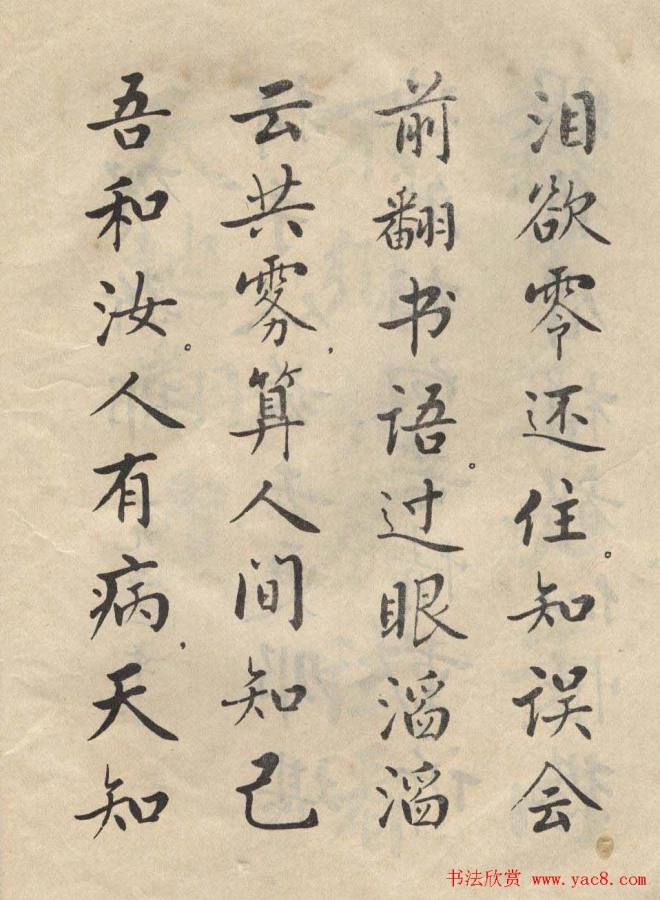 泪欲零还住。知误会
前翻书语。过眼滔滔
云共雾，算人间知己
吾和汝。人有病，天知
书法欣赏 www.yac8.com